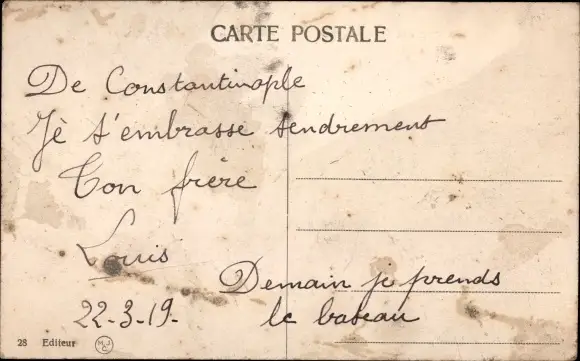 CARTE POSTALE
De Constantinople
Jè t'embrasse tendrement
Ton frère
Louis
Demain je prends
le bateau
22-3-19-
28 Editeur